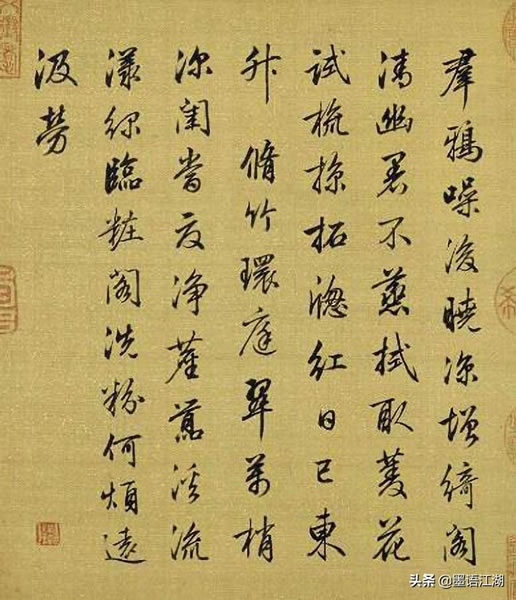 羣鴉噪後曉涼增綺閣
清幽暑不蒸拭取菱花
試梳掠拓牕紅日已東
升 脩竹環庭翠萬梢
深閨當夏淨塵囂溪流
漾綠臨粧閣洗粉何煩遠
汲勞
头条 @墨语江湖